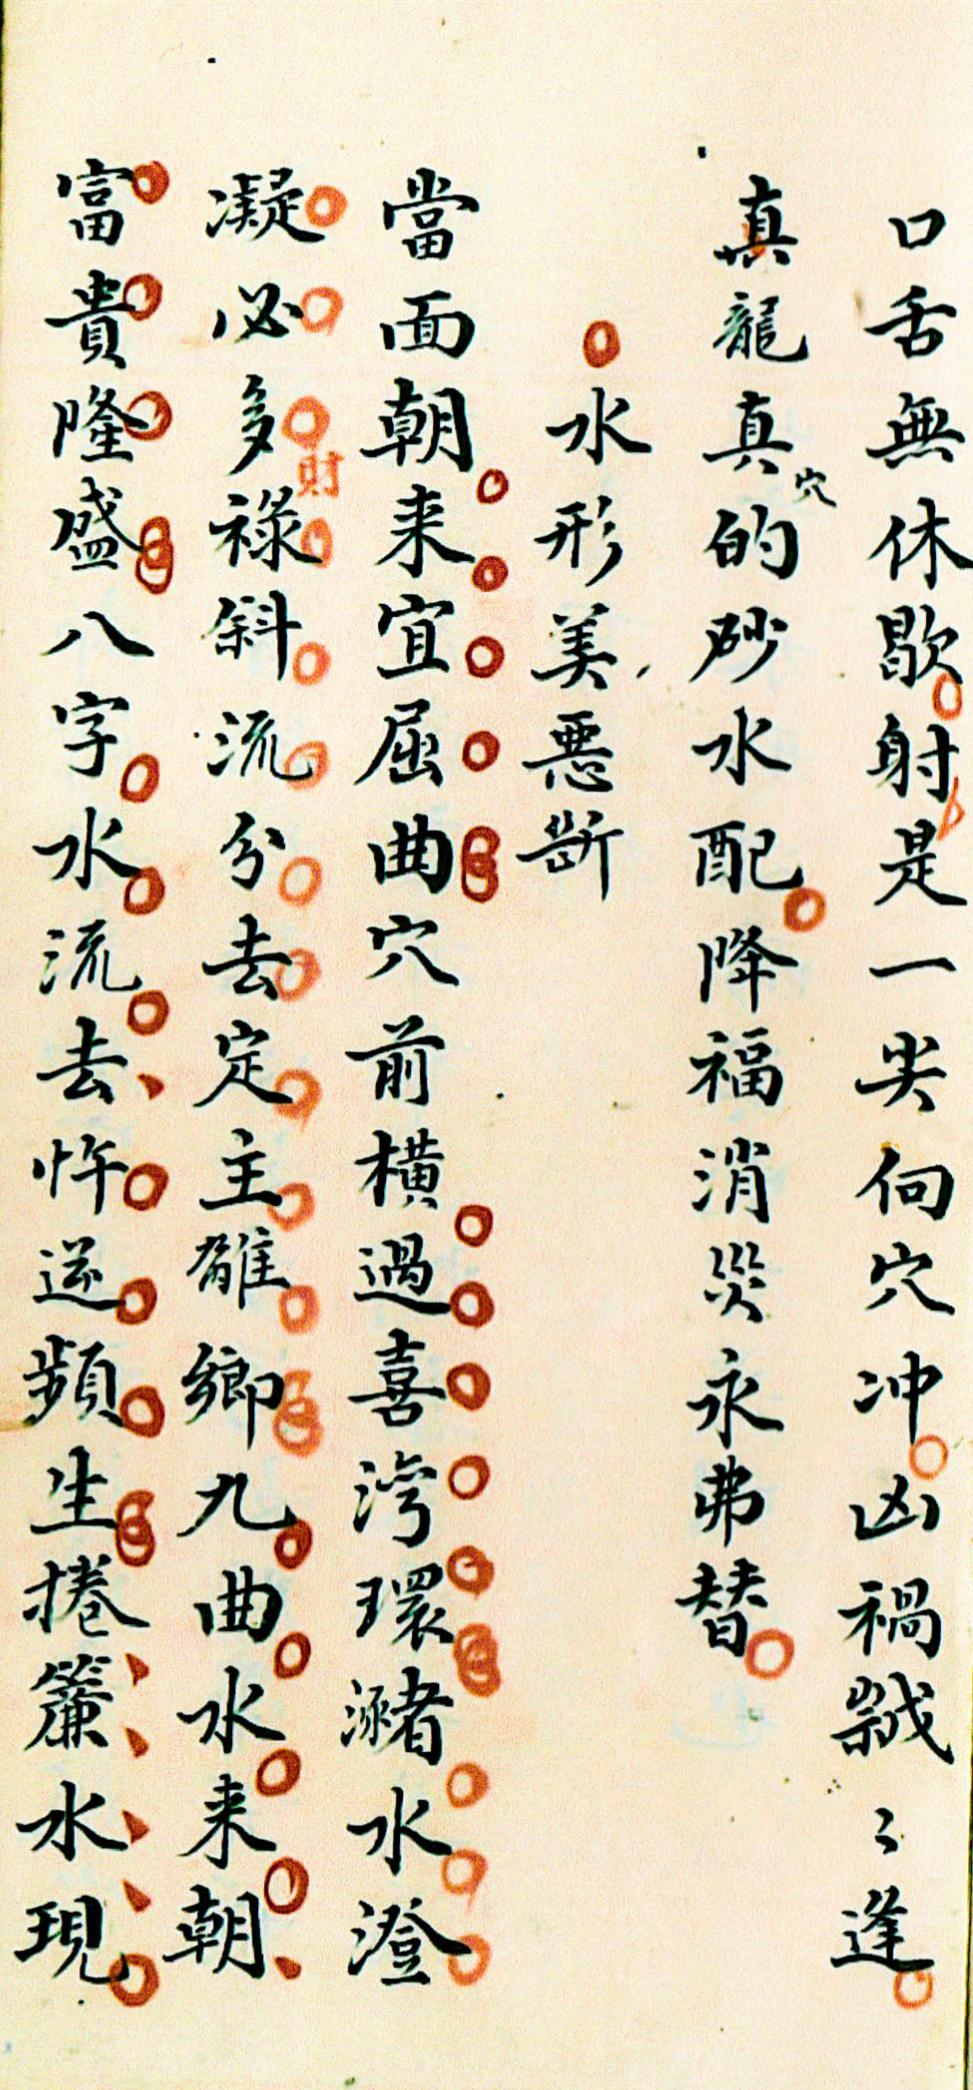 口舌無休歇射是一尖向穴冲凶禍歲〻逢
真龍真穴的砂水配降福消災永弗替
水形美惡斷
當面朝来宜屈曲穴前橫過喜灣環瀦水澄
凝必多財祿斜流分去定主離鄉九曲水来朝
富貴隆盛八字水流去忤逆頻生捲簾水現